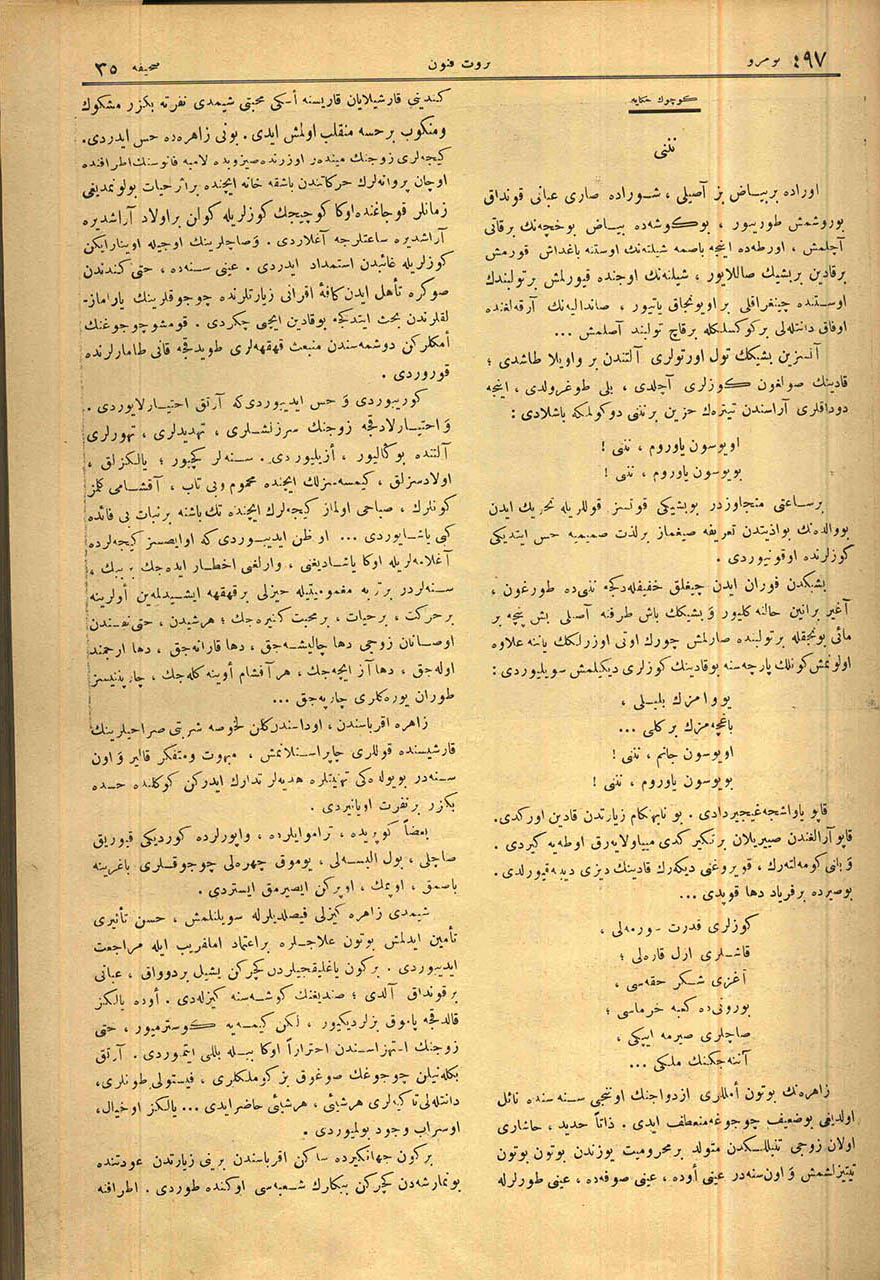 ٤٩٧ نومرو
ثروت فنون
صحيفه ٣٥
كوچوك حكايه
ننى
اوراده بر بياض بز آصيلى ، شوراده صارى عبانى قونداق
بوروشمش طوريبور ، بوكوشه‌ده بياض بوخچه‌نك برقاتى
آچلمش ، اورطه‌ده اينجه باصمه شيلته‌نك اوستنه باغداش قورمش
بر قادين بر بشيك صاللايور ، شيلته‌نك اوجنده قيورلمش بر تولبندك
اوستنده چينغراقلى بر اويونجاق ياتيور ، صانداليه‌نك آرقه‌لغنده
اوفاق دانته‌لى بر كوكسلكله برقاچ تولبند آصلمش ...
آنسزين بشيكك تول اورتولرى آلتندن بر واويلا طاشدى ؛
قادينك صولغون كوزلرى آچلدى ، بلى طوغرولدى ، اينجه
دوداقلرى آراسندن تيتره‌ك حزين بر ننى دوكولمكه باشلادى :
اويوسون ياوروم ، ننى !
بويوسون ياوروم ، ننى !
بر ساعتى متجاوزدر بوبشيكى قوتسز قوللريله تحريك ايدن
بووالده‌نك بواذيتدن تعريفه صيغماز بر لذت صميميه حس ايتديكى
كوزلرنده اوقونيوردى .
بشيكدن فوران ايدن چيغلق خفيفله‌دكجه ننى‌ده طورغون ،
آغير بر انين حالنه كليور و بشيكك باش طرفنه آصلى بش پنجه بر
مائى بونجقله بر تولبنده صارلمش چورك اوتى اوزرلكك ياننه علاوه
اولونمش كوتلك پارچه‌سنه بوقادينك كوزلرى ديكيلمش سويليوردى :
يووامزك بلبلى ،
باغچه‌مزك بر كلى ...
اويوسون جانم ، ننى !
بويوسون ياوروم ، ننى !
قاپو ياواشجه‌غيجيردادى . بو نابهنكام زيارتدن قادين اوركدى .
قاپو آرالغندن صييريلان بر تكير كدى مياولايه‌رق اوطه‌يه كيردى .
و يانى كومه‌لته‌رك ، قويروغنى ديكه‌رك قادينك ديزى ديبنه قيورلدى .
بوصيرده بر فرياد دها قوپدى ...
كوزلرى قدرت سورمه‌لى ،
قاشلرى ازل قاره‌لى ؛
آغزى شكر حقه‌سى ،
بورونى‌ده كعبه خرماسى ؛
صاچلرى صيرمه ايپكى ،
آننه‌جكنك ملكى ...
زاهره‌نك بوتون أمللرى ازدواجنك اوننجى سنه‌سنده نائل
اولديغى بوضعيف چوجوغه‌منعطف ايدى . ذاتاً حديد ، حاشارى
اولان زوجى تنبللكدن متولد بر محروميت يوزندن بوتون بوتون
تيتيزلشمش و اون‌سنه‌در عينى أوده ، عينى صوفه‌ده ، عينى طورلرله
كندينى قارشيلايان قاريسنه اسكى محبتى شيمدى نفرته بكزر مشكوك
ومنكوب بر حسه منقلب اولمش ايدى . بونى زاهره‌ده حس ايدردى .
كيجه‌لرى زوجنك ميندر اوزرنده‌صيزويده لامبه فانوسنك اطرافنده
اوچان پروانه‌لرك حركاتندن باشقه خانه ايچنده بر اثر حيات بولونمديغى
زمانلر قوجاغنده‌اوكا كوچيجك كوزلريله كولن بر اولاد آراشديره
آراشديره ساعتلرجه آغلاردى . وصاچلرينك اوجيله اوينارايكن
كوزلريله غائبدن استمداد ايدردى . عينى سنه‌ده ، حتى كندندن
صوكره تأهل ايدن كافهٔ اقرانى زيارتلرنده چوجوقلرينك ياراماز-
لقلرندن بحث ايتدكجه بوقادين ايچى چكردى . قومشوچوجوغنك
أمكلركن دوشمه‌سندن منبعث قهقهه‌لرى طويدقجه قانى طامارلرنده
قوروردى .
كوريبوردى و حس ايديبوردى‌كه آرتق اختيارلايوردى .
و اختيارلادقجه زوجنك سرزنشلرى ، تهديدلرى ، تهورلرى
آلتنده بوكاليور ، أزيليوردى . سنه‌لر كچيور ؛ يالكزلق ،
اولادسزلق ، كيمسه‌سزلك ايچنده محموم وبى تاب ، آقشامى كلمز
كونلرك ، صباحى اولماز كيجه‌لرك ايچنده تك‌باشنه بر نبات بى فائده
كبى ياشايوردى ... او ظن ايديبوردى‌كه اوايصسز كيجه‌لرده
آغلامه‌لريله اوكا ياشاديغنى ، وارلغنى اخطار ايده‌جك ببك ،
سنه‌لردر مغموميتيله حيزلى بر قهقهه ايشيديلمه‌ين أولرينه
بر حركت ، بر حيات ، بر محبت كتيره‌جك ؛ هر شيدن ، حتى نفسندن
اوصانان زوجى دها چاليشه‌جق ، دها قازانه‌جق ، دها ارجمند
اوله‌جق ، دها آز ايچه‌جك ، هر آقشام أوينه كله‌جك ، چارپنتيسز
طوران يوره‌كلرى چارپه‌جق ...
زاهره اقرباسندن ، اوداسندن‌كلن لخوصه شربتى صراحيلرينك
قارشيسنده قوللرى چاپراستلانمش ، مبهوت ومتفكر قالير و اون
سنه‌در بويوله‌كى تهنيتلره هديه‌لر تدارك ايدركن كوكلنده حسده
بكزر بر نفرت اويانيردى .
بعضاً كوپريده ، تراموايلرده ، واپورلرده كورديكى قيويرق
صاچلى ، بول البسه‌لى ، يوموق چهره‌لى چوجوقلرى باغرينه
باصمق ، اوپمك ، اوپركن ايصيرمق ايستردى .
شيمدى زاهره كيزلى فيصلديلرله سويلنلمش ، حسن تأثيرى
تأمين ايدلمش بوتون علاجلره بر اعتماد امافريب ايله مراجعت
ايديبوردى . بر كون ياغليقجيلردن كچركن يشيل بر دوواق ، عبانى
بر قونداق آلدى ؛ صنديغنك كوشه‌سنه كيزله‌دى . أوده يالكز
قالدقجه ياموق بزلرديكيور ، لكن كيمسه‌يه كوسترميور ، حتى
زوجنك استهزاسندن احترازاً اوكا بيله بللى ايتميوردى . آرتق
بكله‌نيلن چوجوغك صوغوق بز كوملكلرى ، فيستولى طونلرى ،
دانته‌لى تاكيه‌لرى هر شيئى ، هر شيئى حاضرايدى ... يالكز اوخيال ،
اوسراب وجود بولميوردى .
بر كون جهانكيرده ساكن اقرباسندن برينى زيارتدن عودتنده
بونمارشه‌دن كچركن ببكلرك شعبه‌سى اوكنده طوردى . اطرافنه